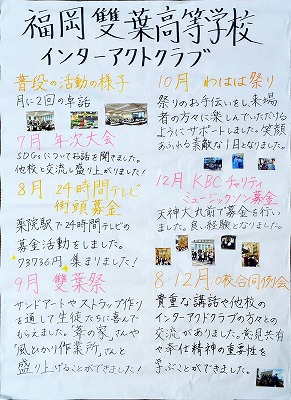 福岡雙葉高等学校
インターアクトクラブ
普段の活動の様子
月に2回の卓話
7月 年次大会
SDGsについてお話を聞きました。
他校と交流し盛り上がりました!
8月 24時間テレビ
街頭募金
薬院駅で24時間テレビの
募金活動をしました。
93736円 集まりました!
9月 雙葉祭
サンドアートやストラップ作り
を通して生徒たちに喜んで
もらえました。"葦の家"さんや
"風ひかり作業所"さんと
盛り上げることができました!
10月 わはは祭り
祭りのお手伝いをし、来場
者の方々に楽しんでいただけ
るようにサポートしました。笑顔
あふれる素敵な1日となりました。
12月 KBCチャリティ
ミュージックソン募金
天神大丸前で募金を行い
ました。良い経験となりました。
8・12月 合同例会
貴重な講話や他校の
インターアクトクラブの方々との
交流がありました。意見共有
や奉仕精神の重要性を
学ぶことができました。